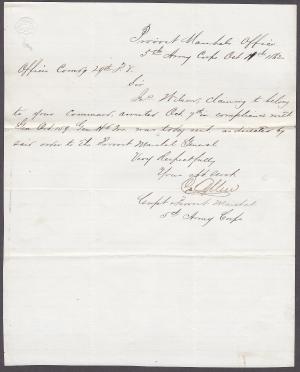 Provost Marshal's Office
5th Army Corps Oct 1862
Officer Comdg 29th P. V.
Sir
Jno Wilson, claiming to belong
to your command, arrested Oct 7th in compliance with
Gen Ord. Gen Hd Qrs was today sent as directed by
said order to the Provost Marshal General
Very Respectfully
Your obt Servt
Capt & Provost Marshal
5th Army Corps